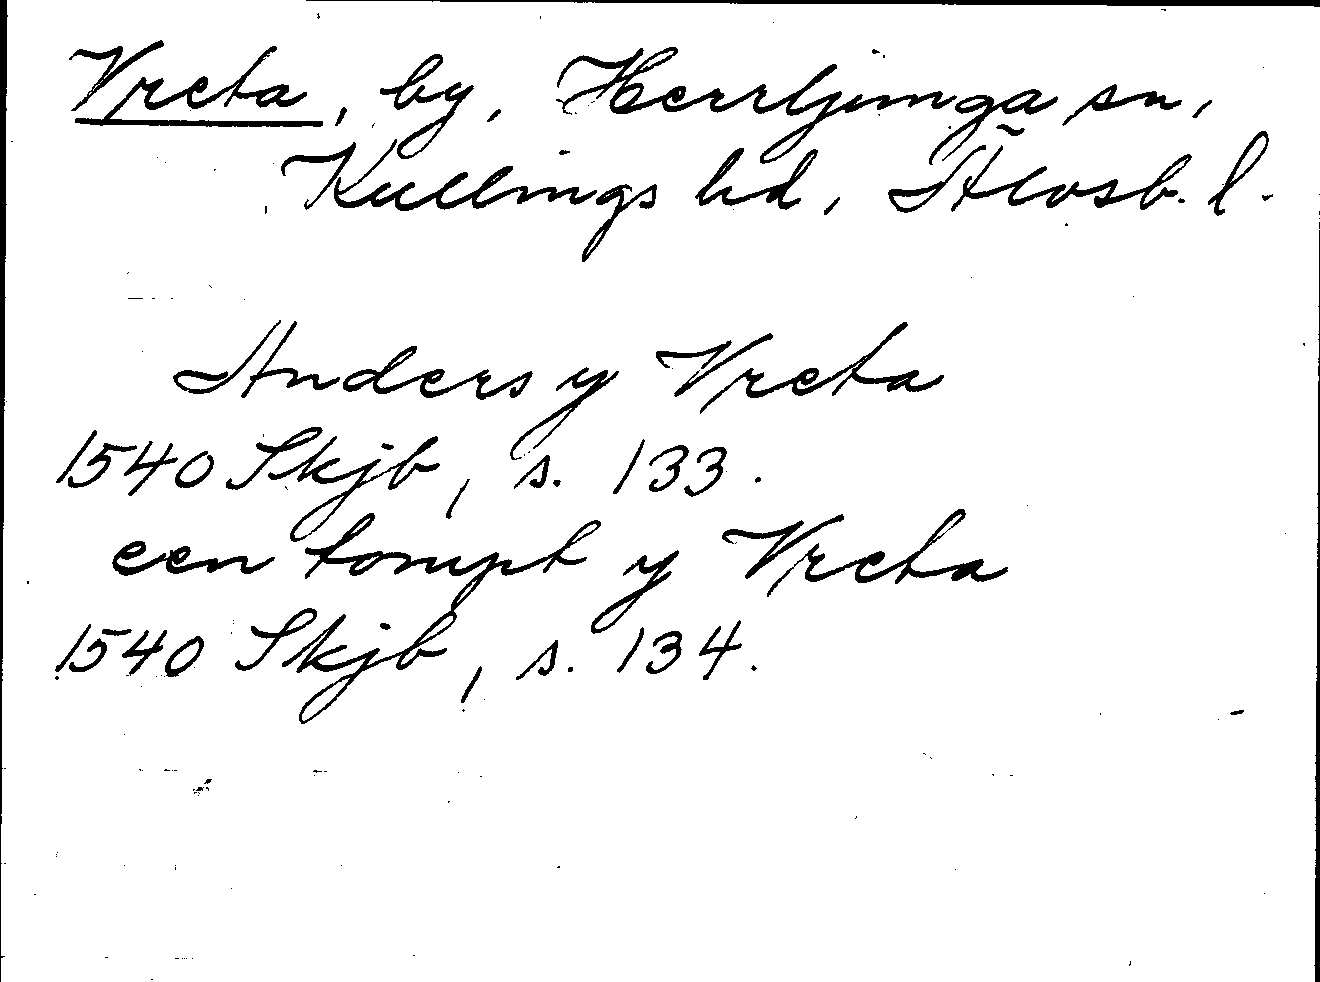 Vreta, by, Herrljunga sn,
Kullings hd, Älvsb. l.
Anders y Vreta
1540 Skjb, s. 133.
een tompt y Vreta
1540 Skjb, s. 134.